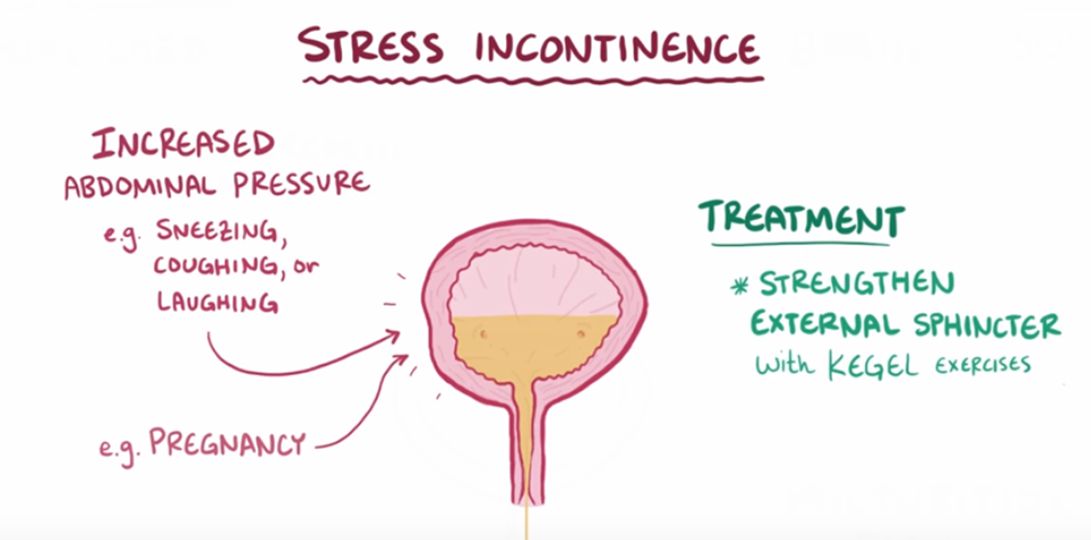 STRESS INCONTINENCE
INCREASED
ABDOMINAL PRESSURE
e.g. SNEEZING,
COUGHING, or
LAUGHING
e.g. PREGNANCY
TREATMENT
* STRENGTHEN
EXTERNAL SPHINCTER
with KEGEL EXERCISES